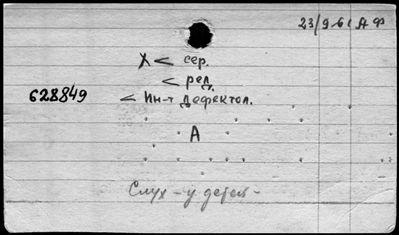 23/9-61 АФ
Х < сер.
< ред.
628849 < Ин-т Дефектол.
А
Слух - у детей -